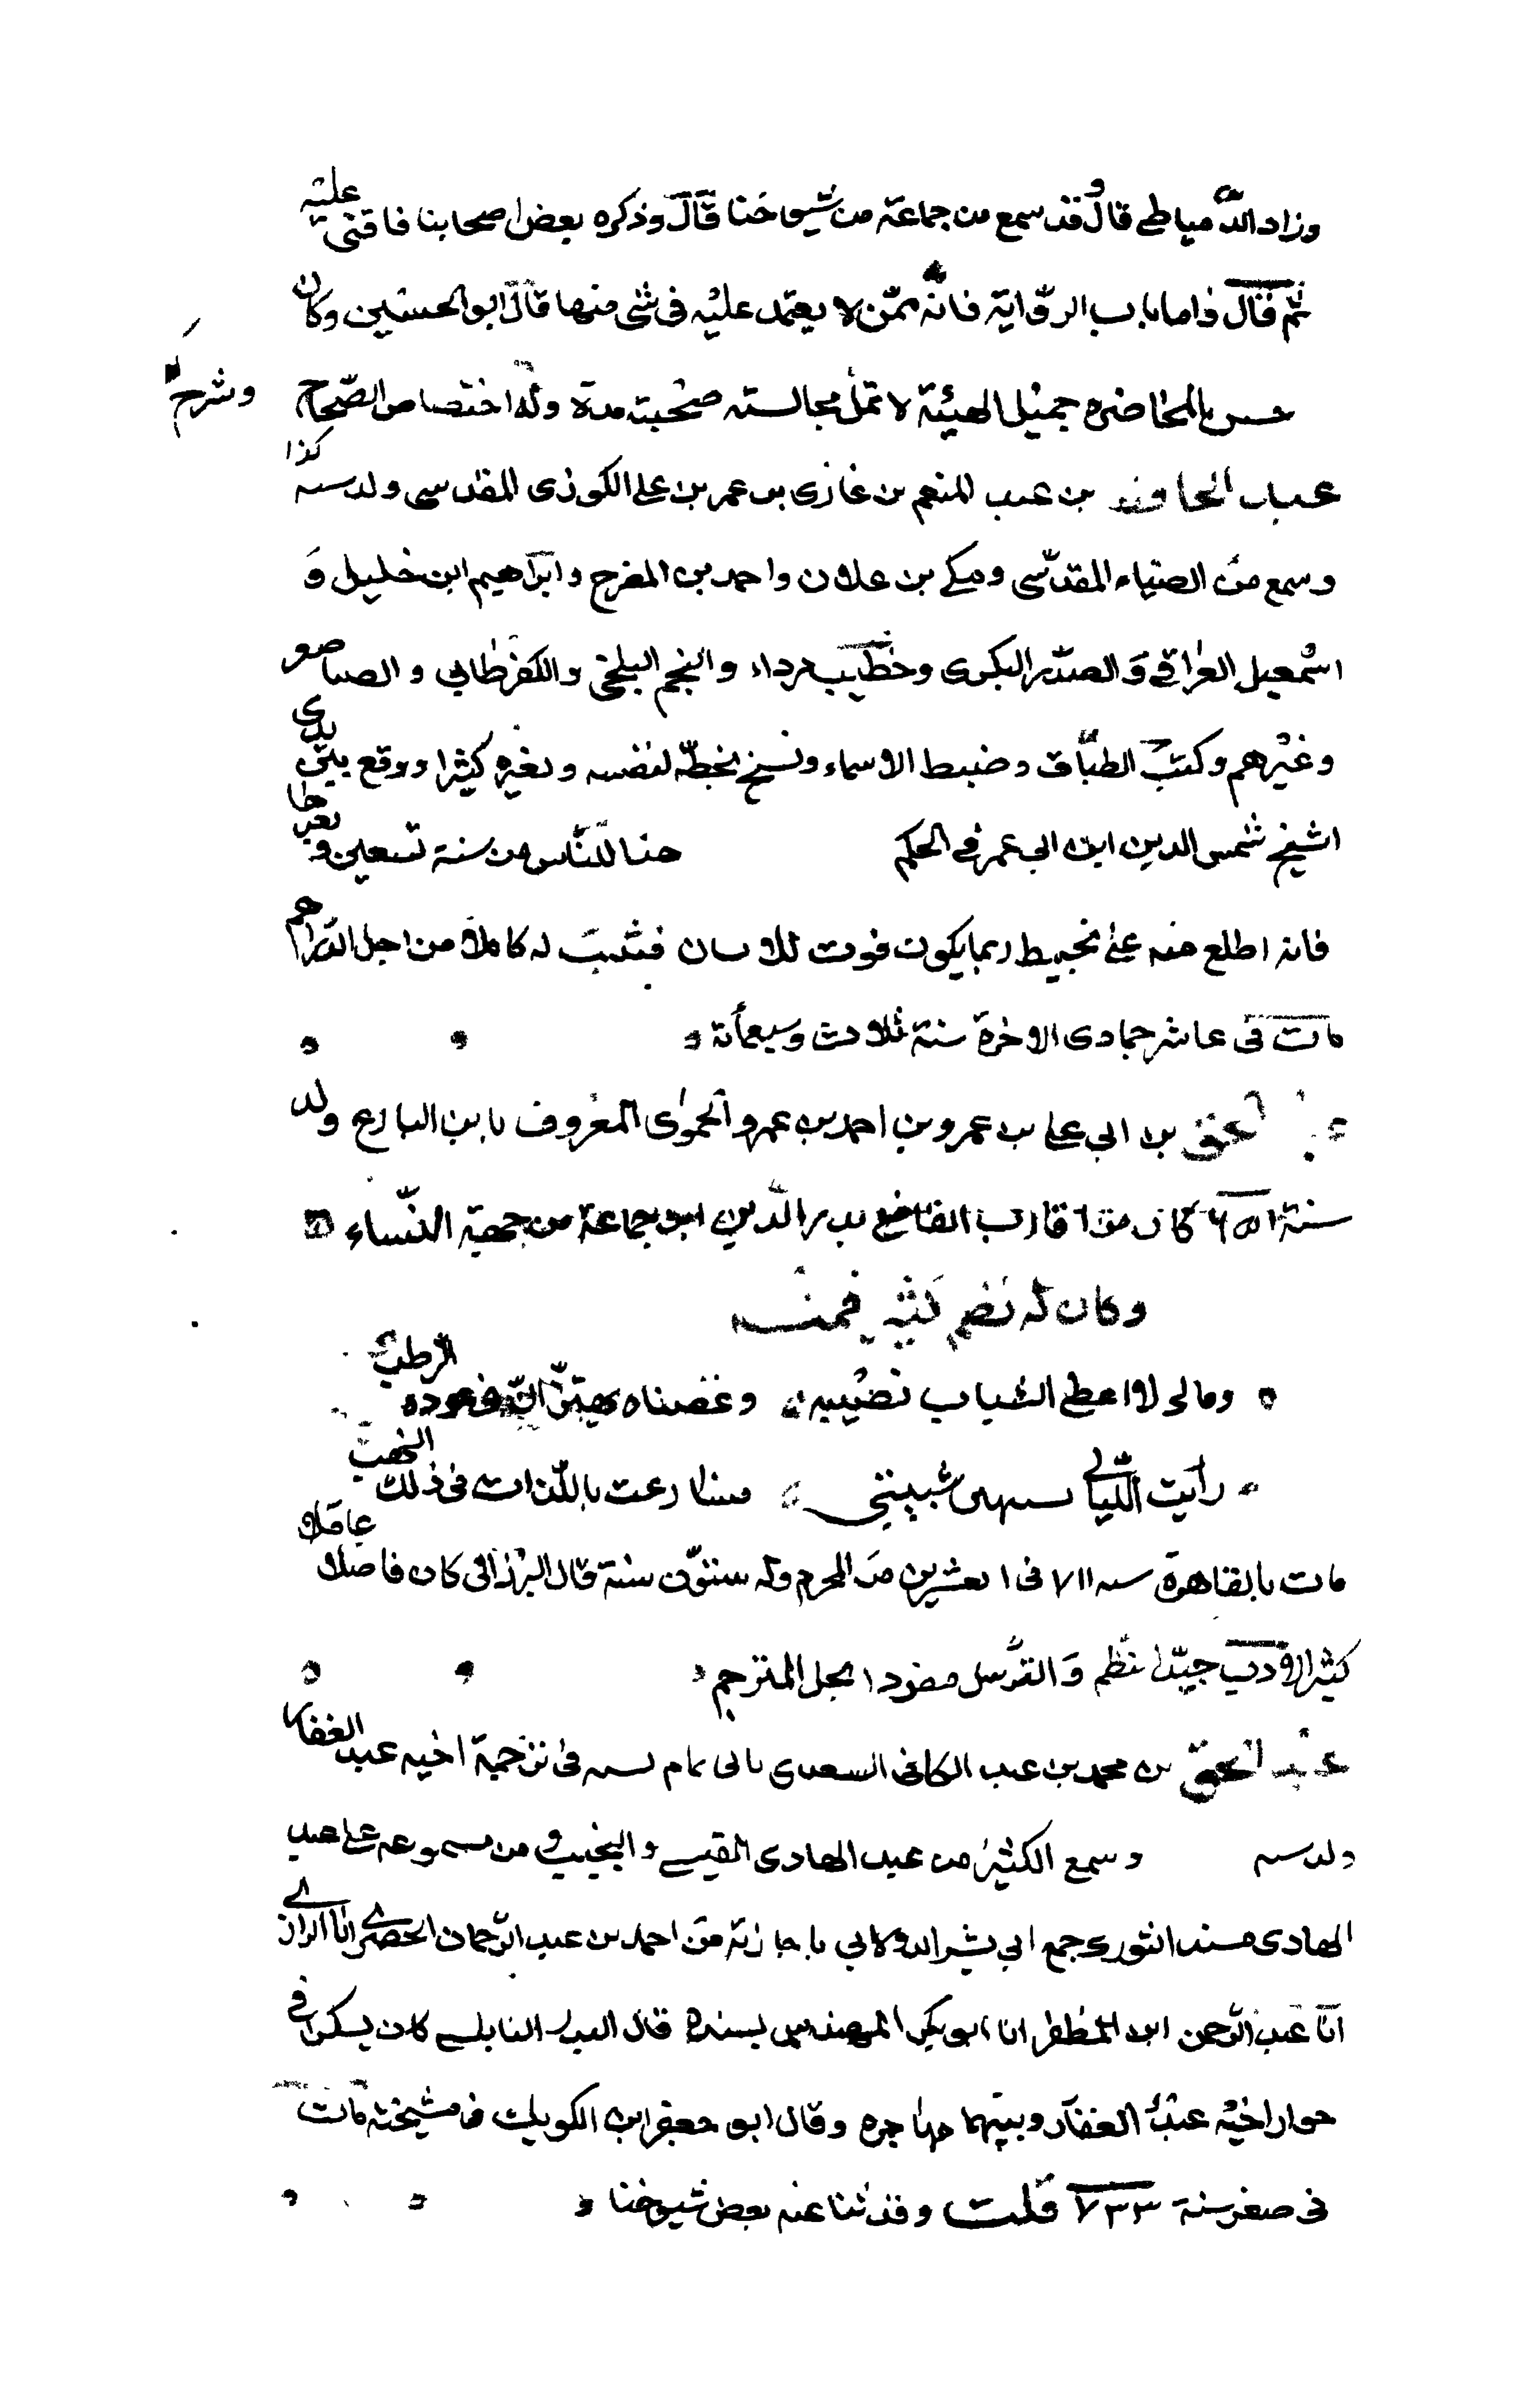 وزاد الدمياطي قال وقد سمع من جماعة من شيوخنا قال وذكره بعض اصحابنا فاقتنى عليه
ثم قال واما باب الرواية فانه ممن لا يعتمد عليه في شى منها قال ابو الحسين وكان
حسن المحاضره جميل الهيئة لا تمل مجالسته صحبته مدة وله اختصاص الصحاح وشرح
عبد الحافظ بن عبد المنعم بن غازى بن عمر بن على الكورى المقدسى ولد سنه كذا
وسمع من الضياء المقدسى ومكى بن علان واحمد بن المفرج وابراهيم ابن خليل و
اسمعيل العراقي والصدر البكرى وخطيب مردا والنجم البلخى والكفرطابي و
وغيرهم وكتب الطباق وضبط الاسماء ونسخ بخطه لنفسه ولغيره كثيرا ووقع بين يدى
الشيخ شمس الدين ابن ابى عمر في الحكم للناس من سنة تسعين و
فانه اطلع منه على تخبيط ربما يكون فوت للانسان فيثبت له كاملا من اجل الدراهم
مات في عاشر جمادى الاخرة سنة ثلاث وسبعمائة
عبد الحق بن ابى على بن عمرو بن احمد بن عمرو الحموى المعروف بابن البارع ولد
سنة ٦٥١ كان من اقارب القاضى بدر الدين ابن جماعة من جهة النساء
وكان له نظم كثير فمنه
ومالى لا اعطى الشباب نصيبه وغصناه يهتزان في عوده الرطب
رايت الليالى شبيبتي فسارعت باللذات في ذلك النهب
مات بالقاهرة سنه ٧١١ في العشرين من المحرم وله ستون سنة قال البرزالى كان فاضلا عاقلا
كثير الادب جيد النظم والترسل
عبد الحق بن محمد بن عبد الكافى السعدى ياتى تمام نسبه فى ترجمة اخيه عبد الغفار
ولد سنه وسمع الكثير من عبد الهادى القيسى والنجيب ومن مسموعه على عبد
الهادى مسند الثورى جمع ابي بشر الدولابي باجازته من احمد بن عبد الرحمان الحضرى انا الرازى
انا عبد الرحمن ابن المظفر انا ابو بكر المهندس بسنده قال البدر النابلسى كان يسكن في
جوار اخيه عبد الغفار وبينهما مهاجره وقال ابو جعفر ابن الكويك في مشيخته مات
في صفر سنة ٧٣٣ قلت وقد ثنا عنه بعض شيوخنا